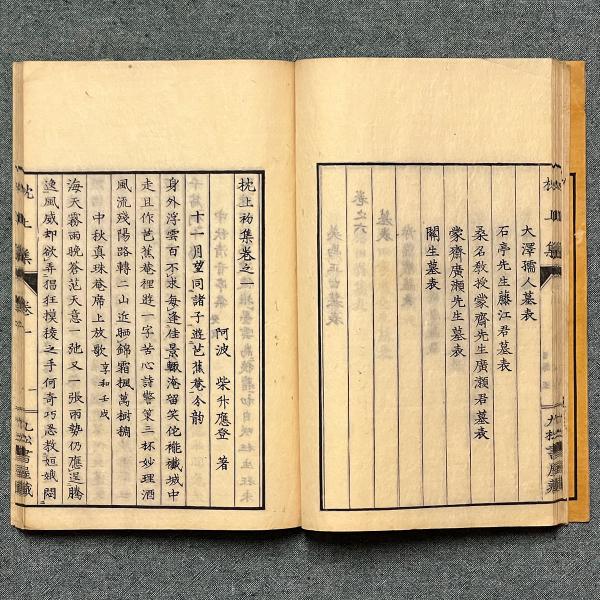 大澤孺人墓表
石亭先生藤江君墓表
桑名教授蒙齋先生廣瀬君墓表
蒙齋廣瀬先生墓表
關生墓表
枕上集
九松書屋藏
枕上初集卷之一
阿波 柴升應登 著
十一月望同諸子遊芭蕉菴分韵
身外浮雲百不求每逢佳景輒淹留笑侘櫳檻城中
走且作芭蕉菴裡遊一字苦心詩警策三杯妙理酒
風流殘陽路轉二山近晒錦霜楓萬樹稠
中秋真珠菴席上放歌享和壬戌
海天霧雨晚蒼茫天意一弛又一張雨勢仍應逞騰
逸風威却欲弄猖狂摸稜之手何奇巧恐教姮娥悶
枕上集
卷一
一
九松書屋藏